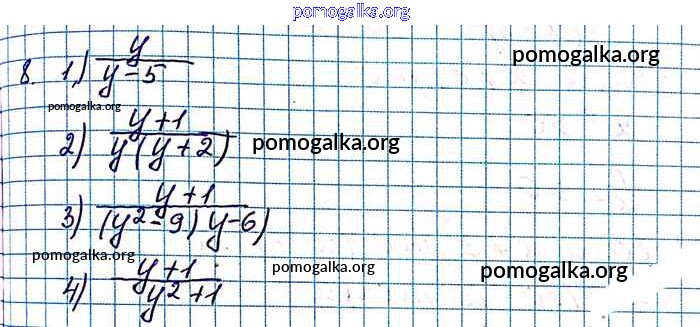 pomogalka.org
8. 1) y/(y-5)
pomogalka.org
pomogalka.org
2) (y+1)/(y(y+2))
pomogalka.org
3) (y+1)/((y²-9)y-6)
pomogalka.org
4) (y+1)/(y²+1)
pomogalka.org
pomogalka.org